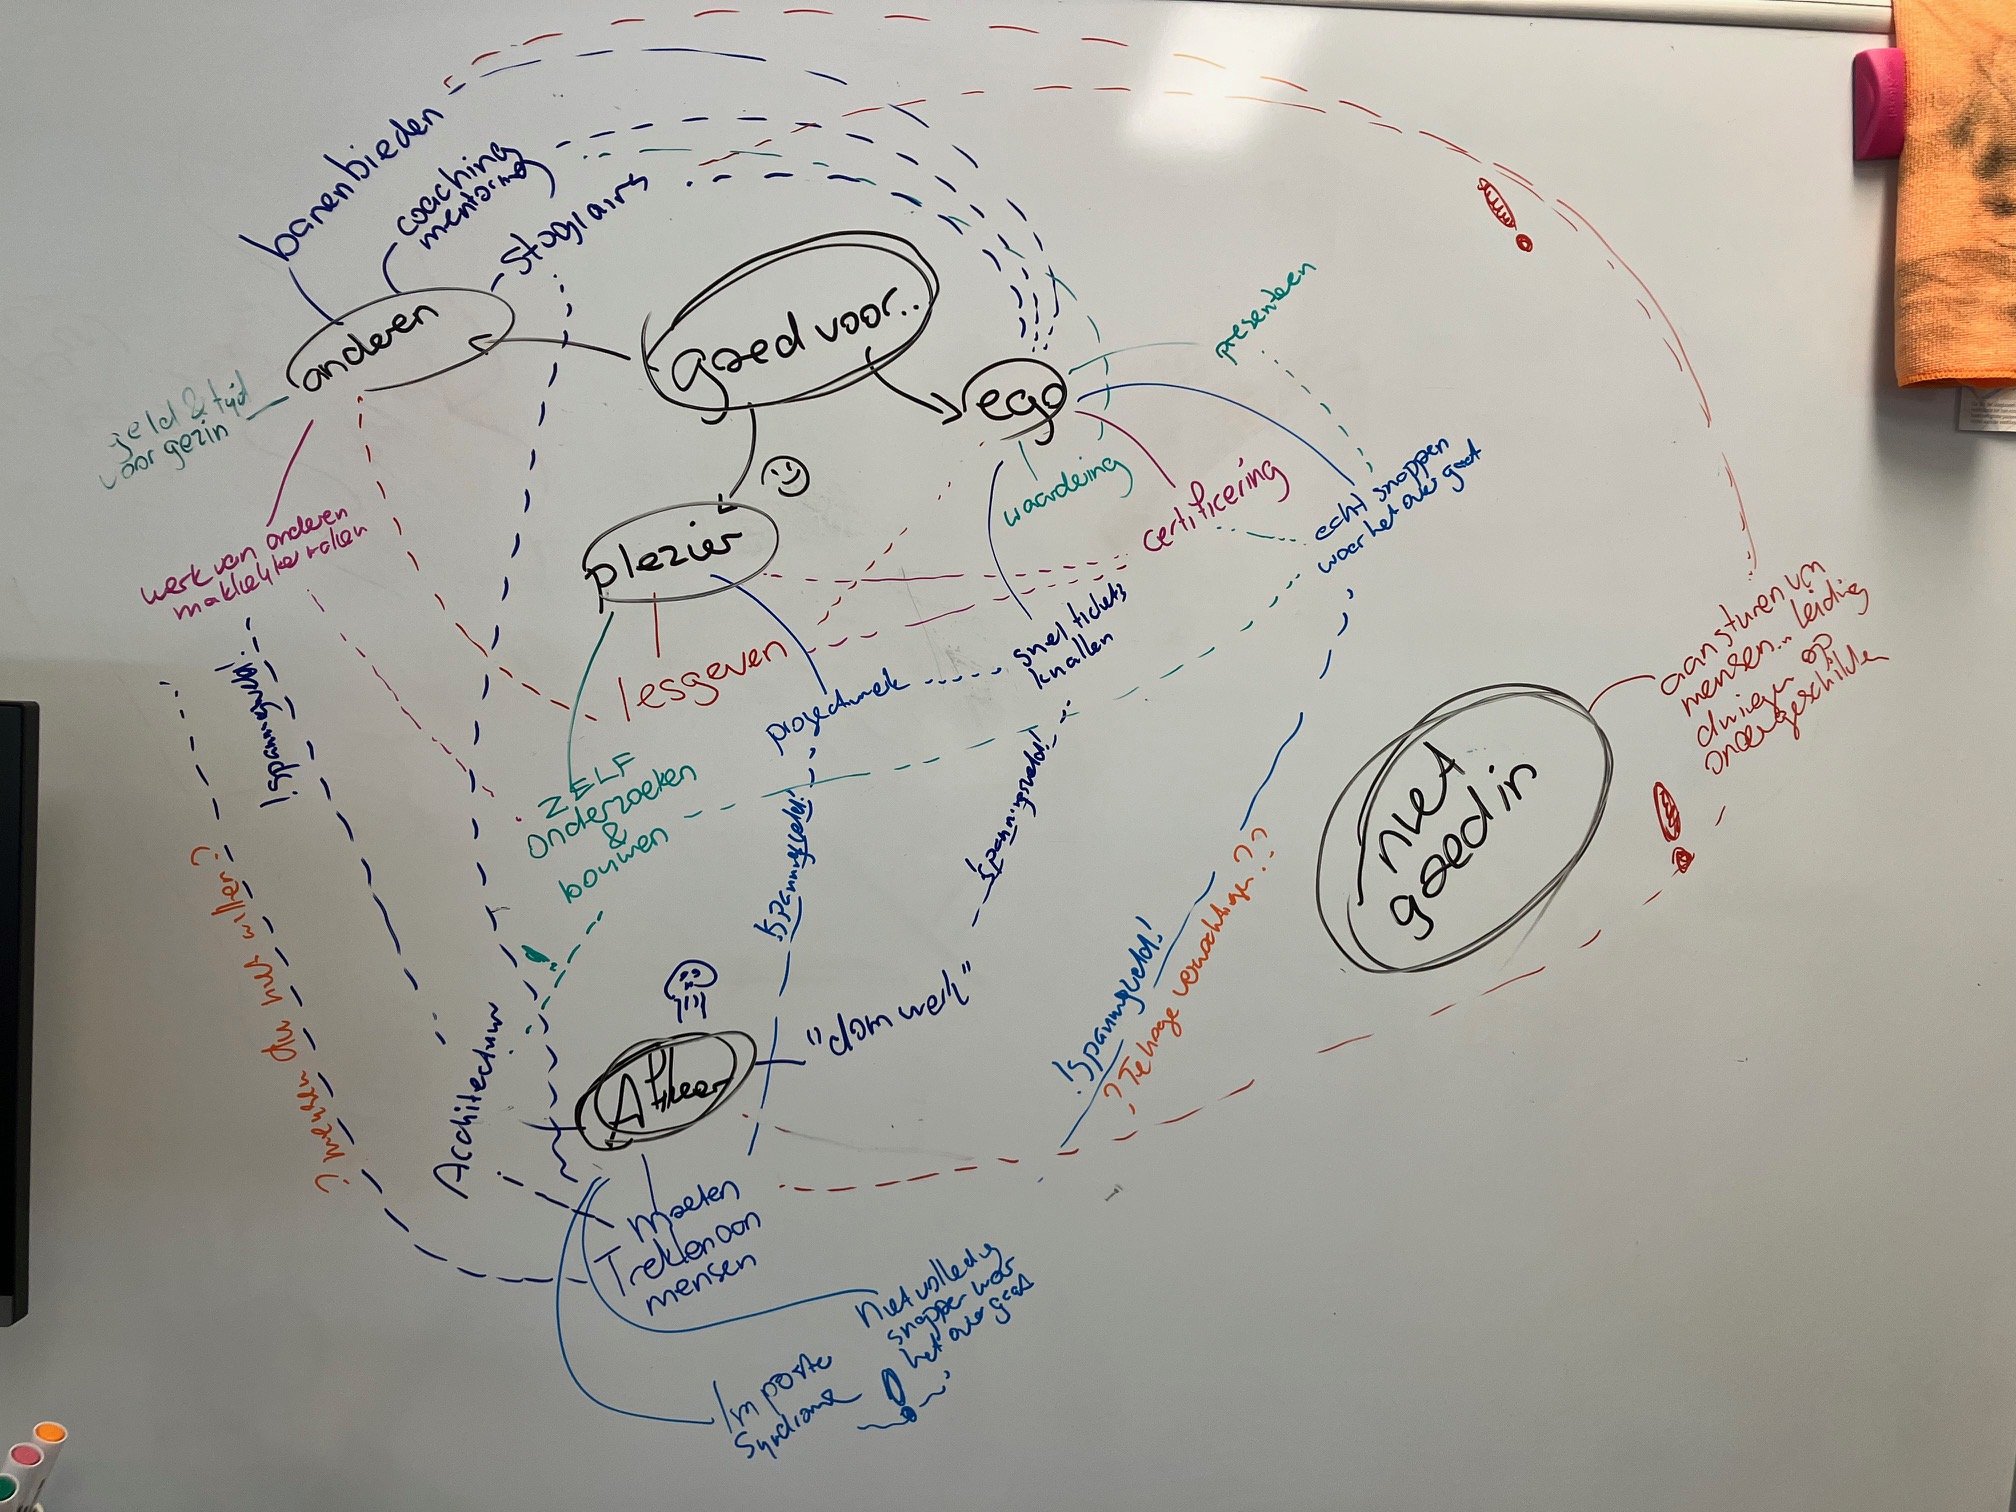 banenbieden
coaching
mentoring
stagiairs
anderen
goed voor..
ego
presenteren
geld & tijd
voor gezin
waardering
certificering
echt snappen
waar het over gaat
plezier
werk van anderen
makkelijker maken
!spanningsveld!
lesgeven
snel tickets
knallen
projectwerk
aansturen van
mensen... leiding
op
ondergeschikten
ZELF
onderzoeken
&
bouwen
!spanningsveld!
!spanningsveld!
niet
goed in
¿ mensen die niet willen?
!spanningsveld!
?Te hoge verwachtingen??
Architectuur
Afkeer
"dom werk"
moeten
Trekken aan
mensen
niet volledig
snappen waar
het over gaat
Imposter
Syndrome